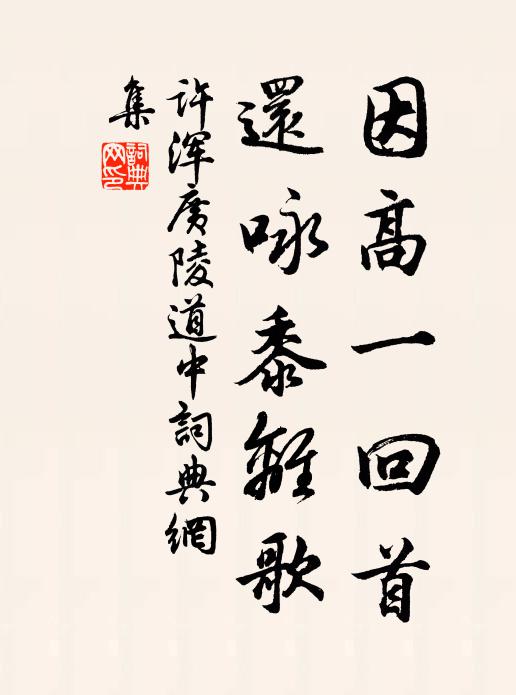 因高一回首
還咏黍離歌
许浑廣陵道中詞典網
集
詞典
网印